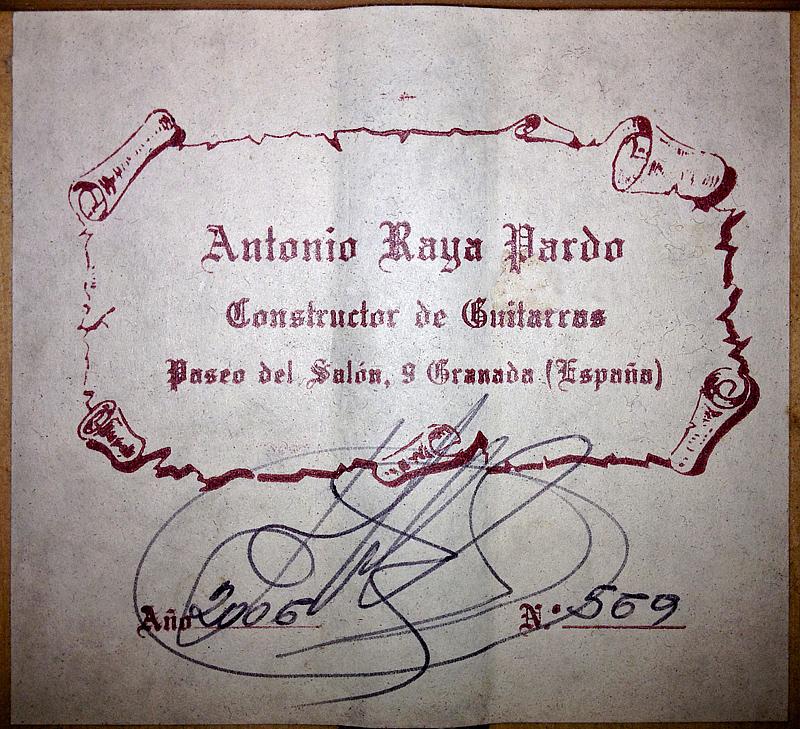 Antonio Raya Pardo
Constructor de Guitarras
Paseo del Salón, 9 Granada (España)
Año 2006 N.º 569